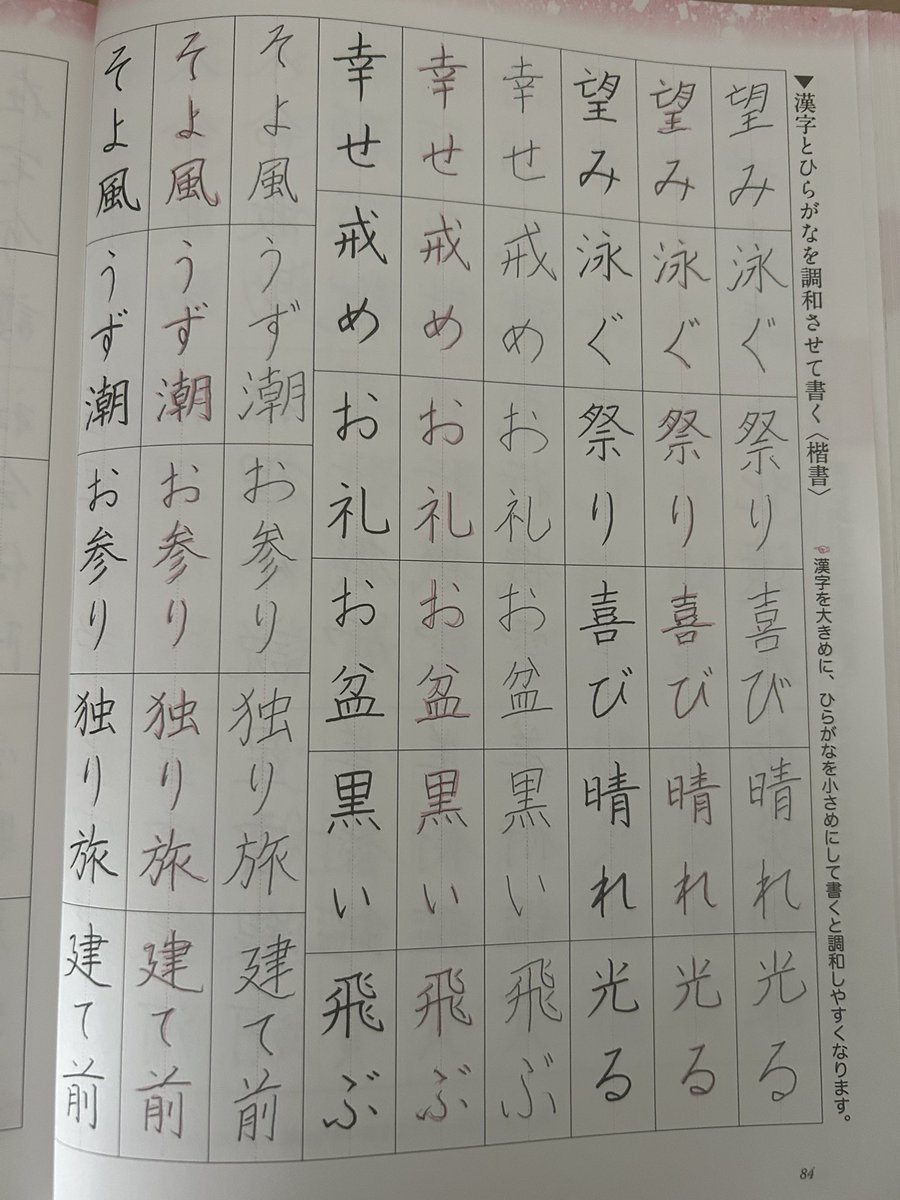 ▼漢字とひらがなを調和させて書く〈楷書〉
☜漢字を大きめに、ひらがなを小さめにして書くと調和しやすくなります。
望み 泳ぐ 祭り 喜び 晴れ 光る
望み 泳ぐ 祭り 喜び 晴れ 光る
望み 泳ぐ 祭り 喜び 晴れ 光る
幸せ 戒め お礼 お盆 黒い 飛ぶ
幸せ 戒め お礼 お盆 黒い 飛ぶ
幸せ 戒め お礼 お盆 黒い 飛ぶ
そよ風 うず潮 お参り 独り旅 建て前
そよ風 うず潮 お参り 独り旅 建て前
そよ風 うず潮 お参り 独り旅 建て前
84